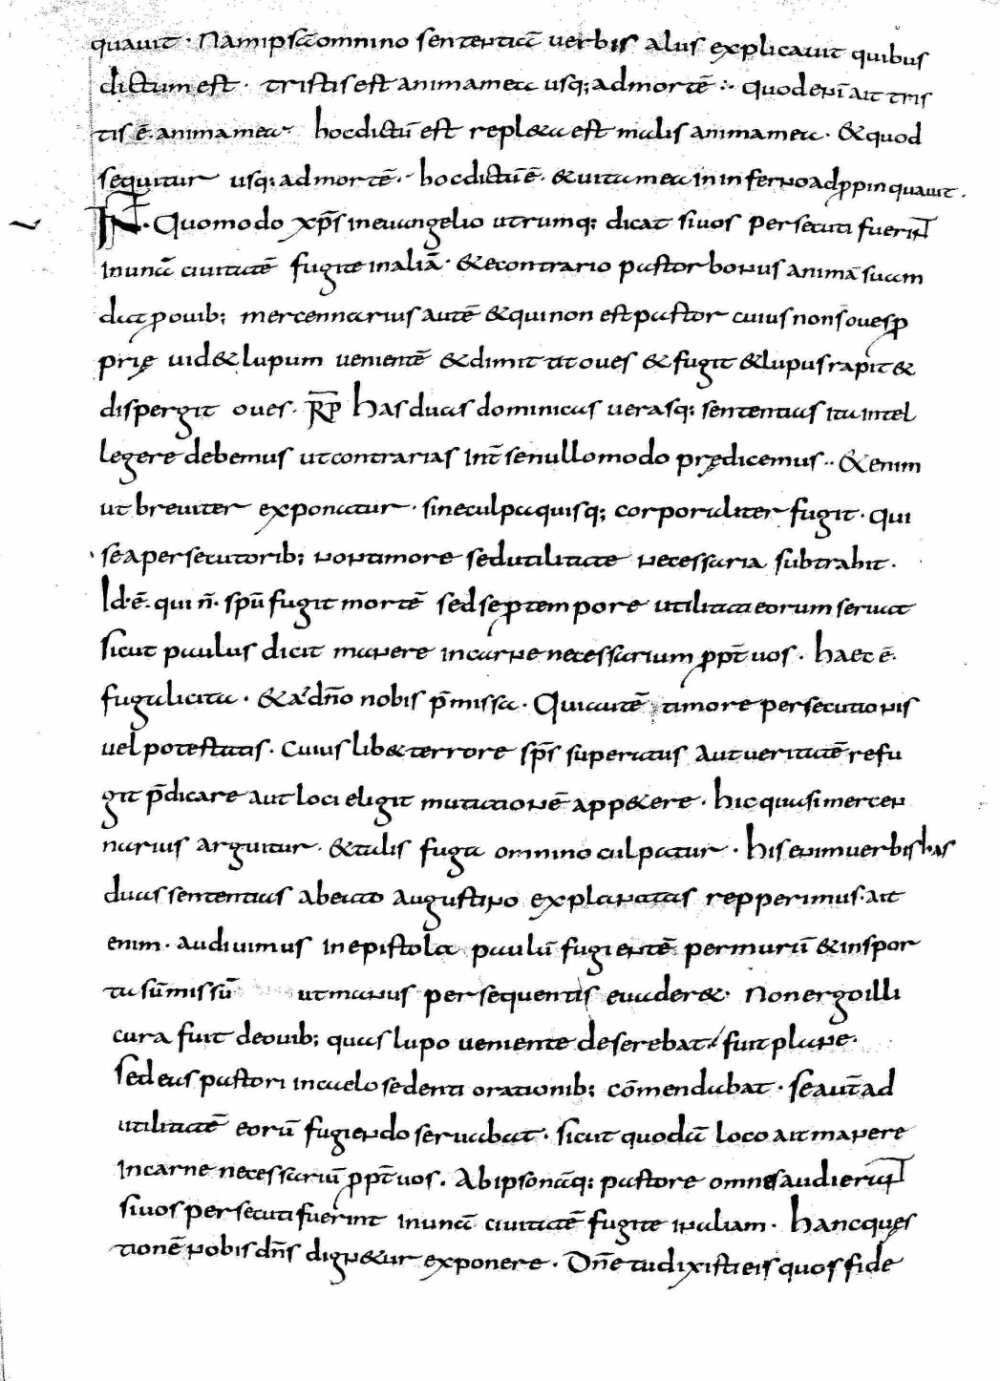 quauit · Nam ipsā omnino sententiā uerbis aliis explicauit quibus
dictum est · tristis est anima mea usq; ad mortē :· quod enī ait tris
tis ē anima mea · hoc dictū est repl&a est malis anima mea · & quod
sequitur usq; ad mortē · hoc dictū ē · & uita mea in inferno adppinquauit ·
INT · Quomodo xp̄s in euangelio utrumq; dicat si uos persecuti fuerint
in unā ciuitatē fugite in aliā · & econtrario pastor bonus animā suam
dat p ouib; mercennarius autē & qui non est pastor cuius non s̄ oues p
prię uid& lupum uenientē & dimittit oues & fugit & lupus rapit &
dispergit oues · R̄P̄ has duas dominicas uerasq; sententias ita intel
legere debemus ut contrarias int̄ se nullo modo prędicemus ·· & enim
ut breuiter exponatur · sine culpa quisq; corporaliter fugit · qui
se a persecutorib; non timore sed utilitate necessaria subtrahit ·
Id · ē · qui n̄ · sp̄u fugit mortē sed se p tempore utilitati eorum seruat
sicut paulus dicit manere in carne necessarium ppt̄ uos · haec ē ·
fuga licita · & a dn̄o nobis p̄missa · Qui autē timore persecutionis
uel potestatis · cuius lib& terrore sp̄s superatus aut ueritatē refu
git p̄dicare aut loci eligit mutationē app&ere · hic quasi mercen
narius arguitur · & talis fuga omnino culpatur · his enim uerbis has
duas sententias a beato augustino explanatas repperimus · ait
enim · audiuimus in epistola paulū fugientē per murū & in spor
ta sūmissū ut manus persequentis euader& · Non ergo illi
cura fuit de ouib; quas lupo ueniente deserebat / fuit plane ·
sed eas pastori in caelo sedenti orationib; cōmendabat · se aut̄ ad
utilitatē eorū fugiendo seruabat · sicut quodā loco ait manere
in carne necessariū ppt̄ uos · Ab ipso nāq; pastore omnes audierant
si uos persecuti fuerint in unā ciuitatē fugite in aliam · hanc quęs
tionē nobis dn̄s dign&ur exponere · Dn̄e tu dixisti eis quos fide